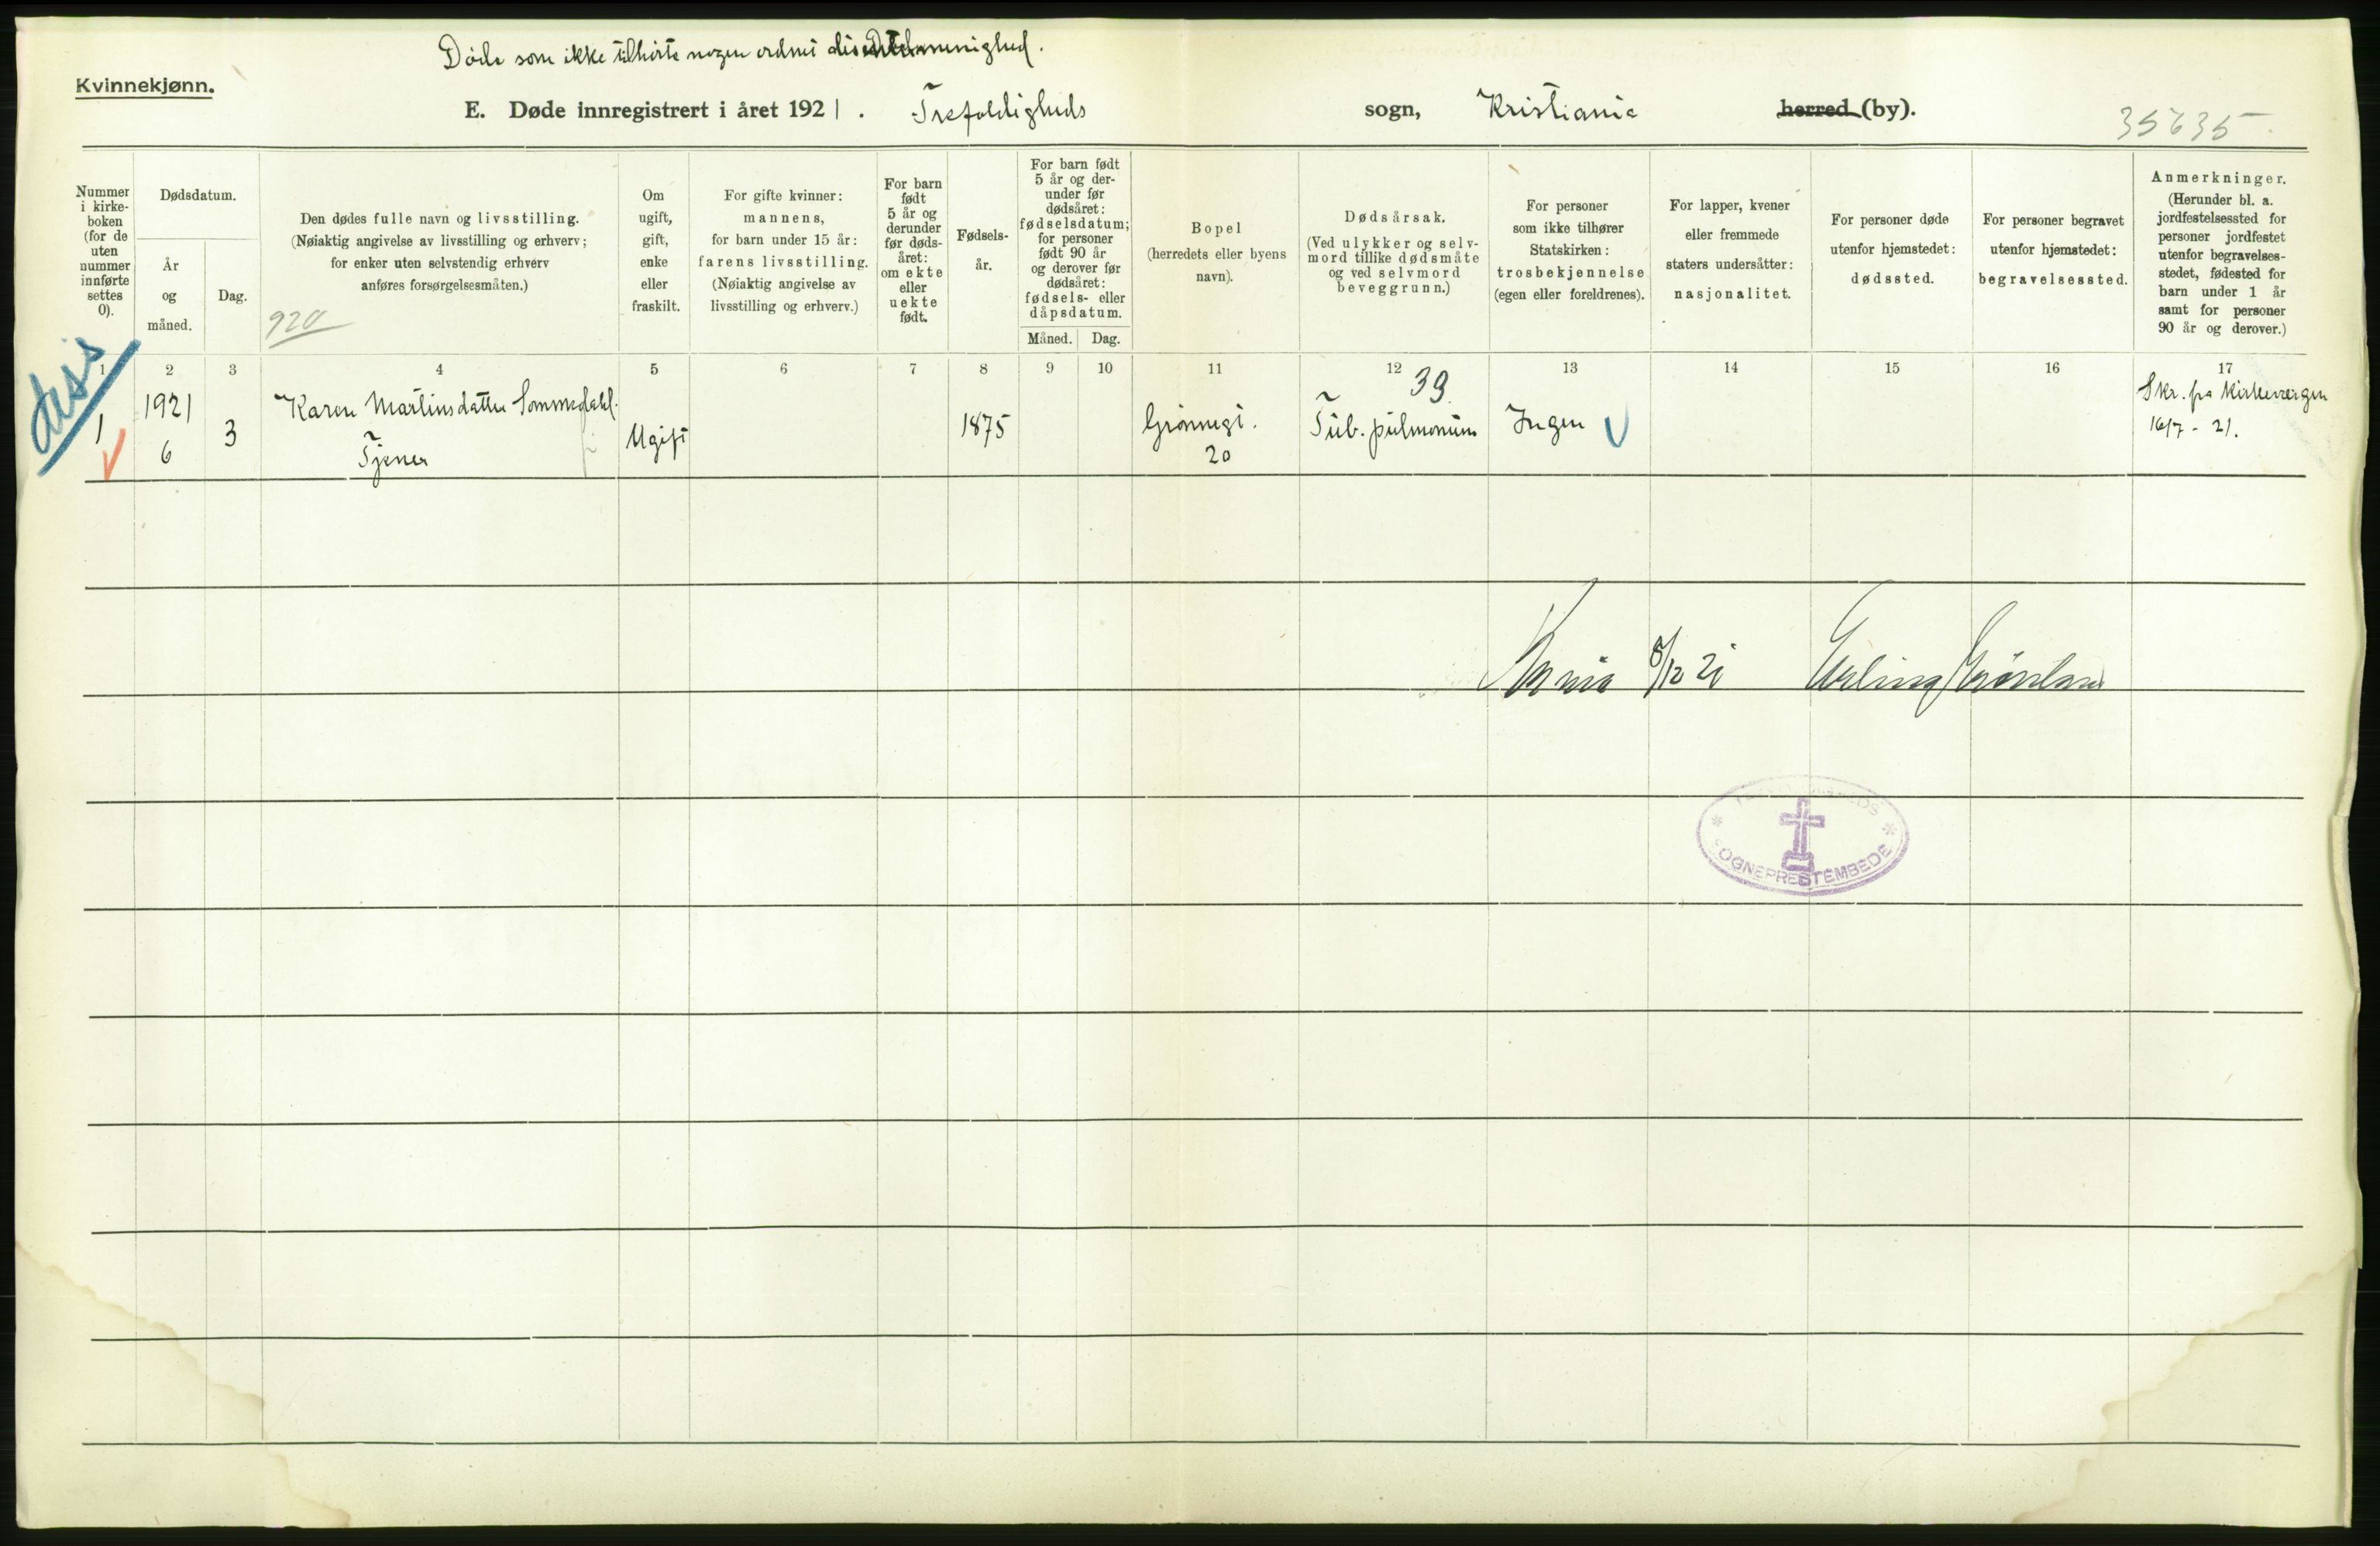 Døde som ikke tilhørte nogen ordnet
Kvinnekjønn.
E. Døde innregistrert i året 1921. Trefoldigheds sogn, Kristiania herred (by).
35635
Nummer i kirkeboken (for de uten nummer innførte settes 0).
Dødsdatum.
År og måned.
Dag.
Den dødes fulle navn og livsstilling.
(Nøiaktig angivelse av livsstilling og erhverv;
for enker uten selvstendig erhverv
anføres forsørgelsesmåten.)
920
Om ugift, gift, enke eller fraskilt.
For gifte kvinner:
mannens,
for barn under 15 år:
farens livsstilling.
(Nøiaktig angivelse av
livsstilling og erhverv.)
For barn født 5 år og derunder før dødsåret: om ekte eller uekte født.
Fødselsår.
For barn født 5 år og derunder før dødsåret: fødselsdatum; for personer født 90 år og derover før dødsåret: fødsels- eller dåpsdatum.
Måned.
Dag.
Bopel
(herredets eller byens
navn).
Dødsårsak.
(Ved ulykker og selvmord tillike dødsmåte
og ved selvmord
beveggrunn.)
For personer
som ikke tilhører
Statskirken:
trosbekjennelse
(egen eller foreldrenes).
For lapper, kvener
eller fremmede
staters undersåtter:
nasjonalitet.
For personer døde
utenfor hjemstedet:
dødssted.
For personer begravet
utenfor hjemstedet:
begravelsessted.
Anmerkninger.
(Herunder bl. a.
jordfestelsessted for
personer jordfestet
utenfor begravelsesstedet, fødested for
barn under 1 år
samt for personer
90 år og derover.)
1 2 3 4 5 6 7 8 9 10 11 12 13 14 15 16 17
diss
39
1 1921 6 3 Karen Martinsdatter
Tjener
Ugift
1875
Grønnegt.
20
Tub. pulmonum
Ingen
Skr. fra Kirkevergen
16/7 - 21.
Krania 8/12 21 Erling Grönland
SOGNEPRESTEMBEDE